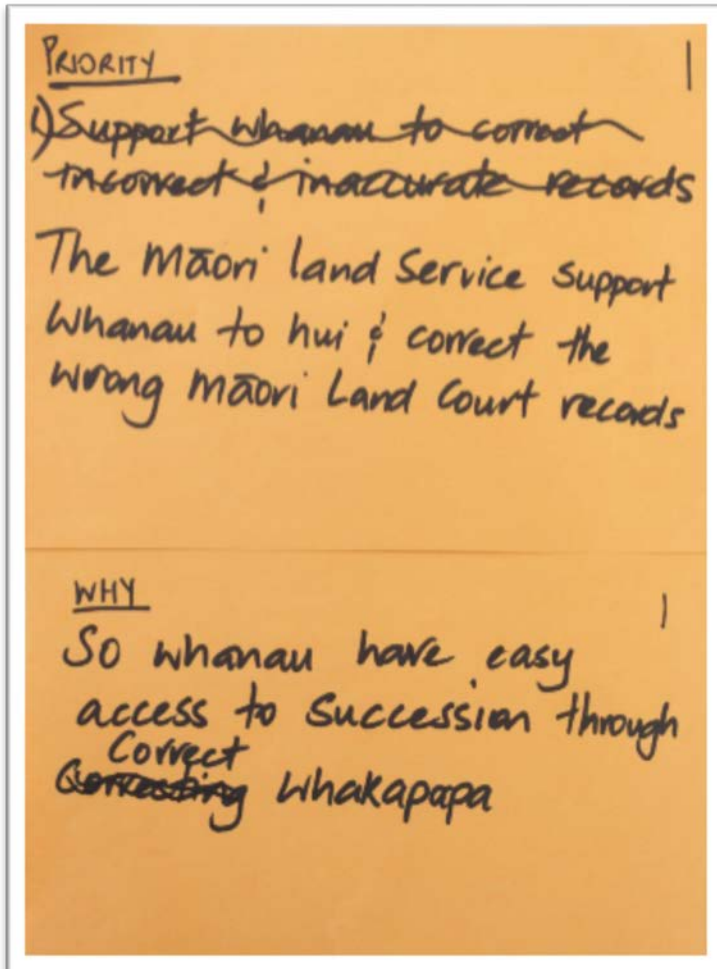 PRIORITY
1
1) Support whanau to correct
incorrect & inaccurate records
The Māori land Service support
whanau to hui & correct the
wrong Māori Land Court records
WHY
1
So whanau have easy
access to Succession through
Correct
Correcting whakapapa